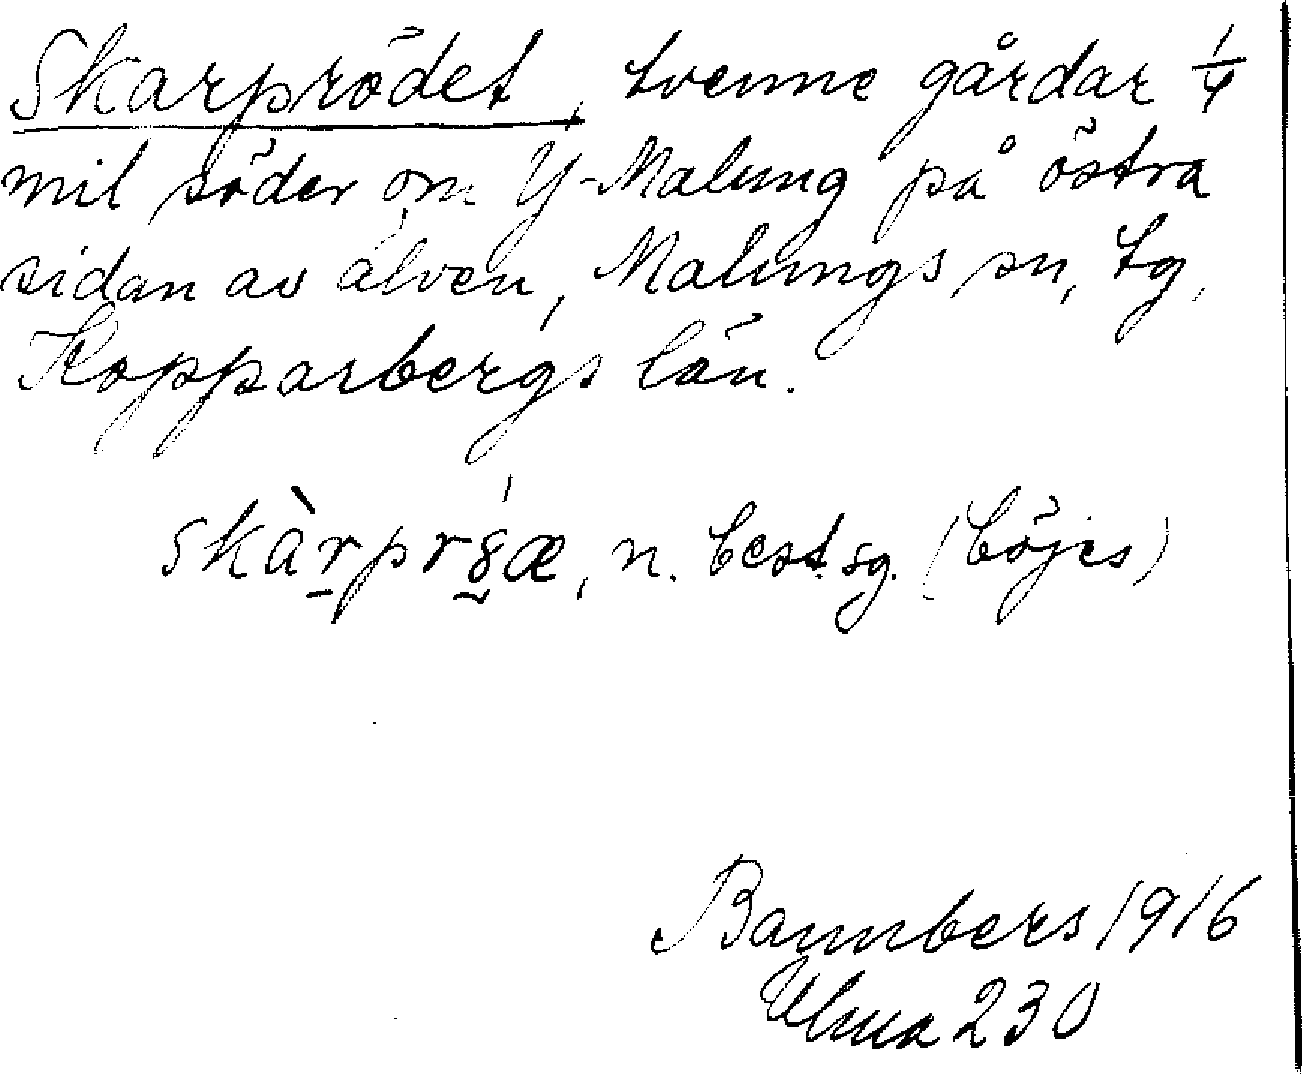 Skarprödet, tvenne gårdar 1/4
mil söder om Y-Malung på östra
sidan av älven, Malungs sn, tg,
Kopparbergs län.
n. best. sg. (böjes)
1916
Ulma 230